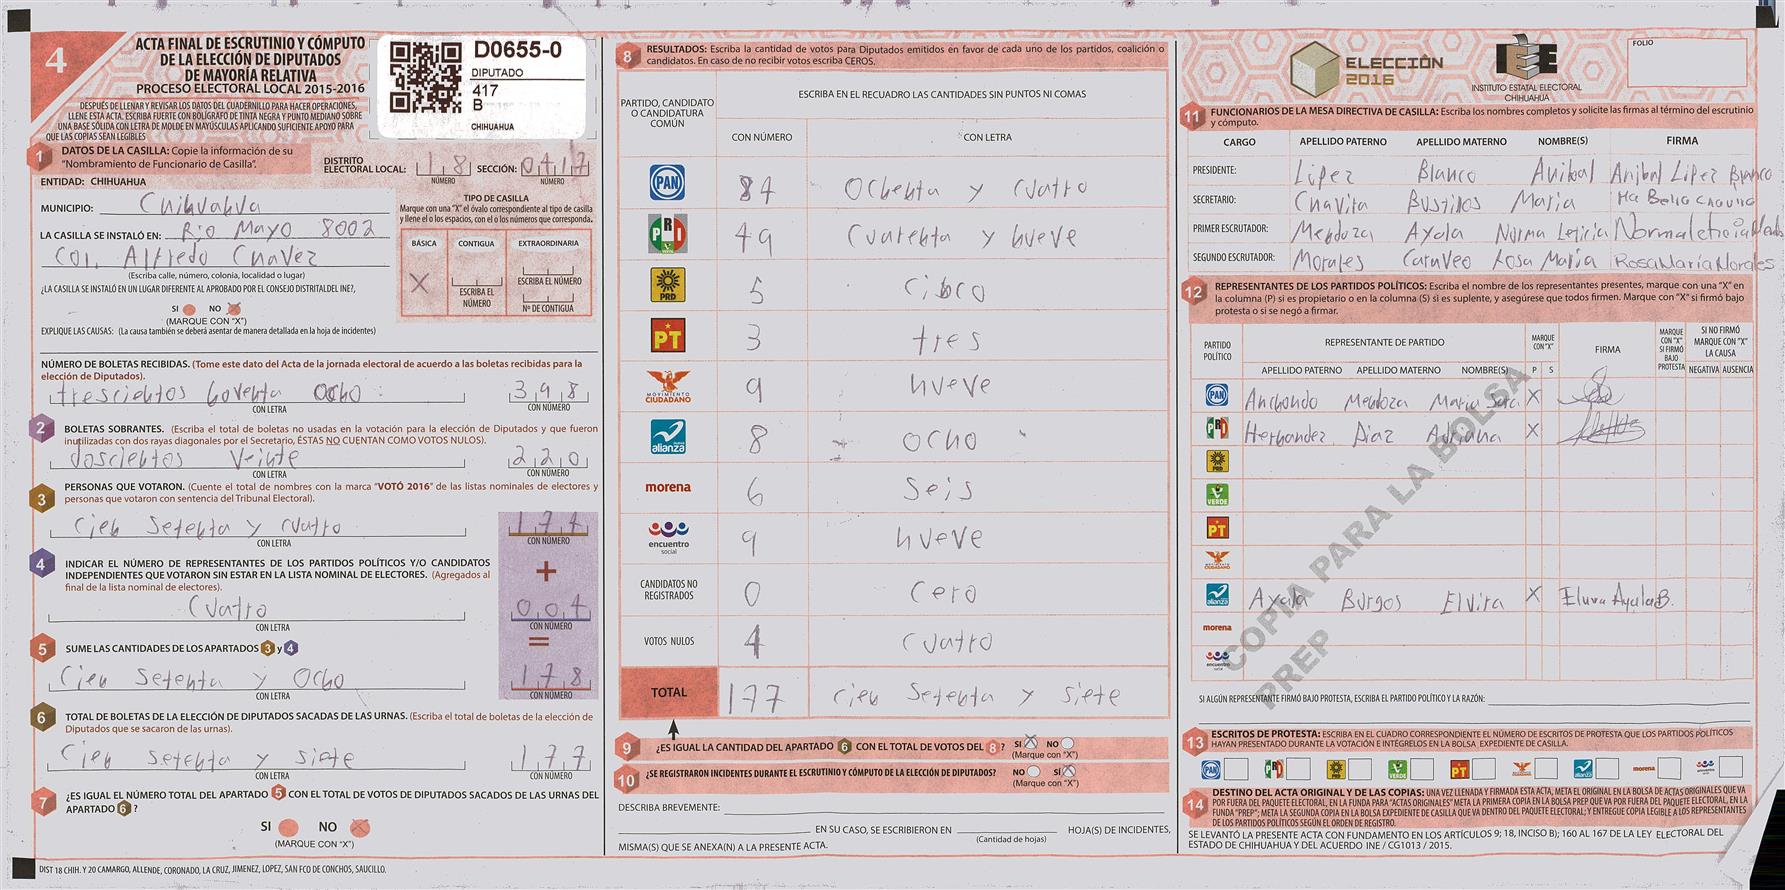 4
ACTA FINAL DE ESCRUTINIO Y CÓMPUTO
DE LA ELECCIÓN DE DIPUTADOS
DE MAYORÍA RELATIVA
PROCESO ELECTORAL LOCAL 2015-2016
DESPUÉS DE LLENAR Y REVISAR LOS DATOS DEL CUADERNILLO PARA HACER OPERACIONES,
LLENE ESTA ACTA. ESCRIBA FUERTE CON BOLÍGRAFO DE TINTA NEGRA Y PUNTO MEDIANO SOBRE
UNA BASE SÓLIDA CON LETRA DE MOLDE EN MAYÚSCULAS APLICANDO SUFICIENTE APOYO PARA
QUE LAS COPIAS SEAN LEGIBLES
D0655-0
DIPUTADO
417
B
CHIHUAHUA
1 DATOS DE LA CASILLA: Copie la información de su
"Nombramiento de Funcionario de Casilla".
DISTRITO
ELECTORAL LOCAL: 18 SECCIÓN: 0417
NÚMERO NÚMERO
ENTIDAD: CHIHUAHUA
MUNICIPIO: Chihuahua
LA CASILLA SE INSTALÓ EN: Rio Mayo 8002
Col. Alfredo Chavez
(Escriba calle, número, colonia, localidad o lugar)
¿LA CASILLA SE INSTALÓ EN UN LUGAR DIFERENTE AL APROBADO POR EL CONSEJO DISTRITAL DEL INE?,
SI NO X
(MARQUE CON "X")
EXPLIQUE LAS CAUSAS: (La causa también se deberá asentar de manera detallada en la hoja de incidentes)
TIPO DE CASILLA
Marque con una "X" el óvalo correspondiente al tipo de casilla
y llene el o los espacios, con el o los números que corresponda.
BÁSICA CONTIGUA EXTRAORDINARIA
X
ESCRIBA EL NÚMERO
ESCRIBA EL NÚMERO
Nº DE CONTIGUA
NÚMERO DE BOLETAS RECIBIDAS. (Tome este dato del Acta de la jornada electoral de acuerdo a las boletas recibidas para la
elección de Diputados).
trescientos noventa ocho 398
CON LETRA CON NÚMERO
2 BOLETAS SOBRANTES. (Escriba el total de boletas no usadas en la votación para la elección de Diputados y que fueron
inutilizadas con dos rayas diagonales por el Secretario, ÉSTAS NO CUENTAN COMO VOTOS NULOS).
doscientos veinte 220
CON LETRA CON NÚMERO
3 PERSONAS QUE VOTARON. (Cuente el total de nombres con la marca "VOTÓ 2016" de las listas nominales de electores y
personas que votaron con sentencia del Tribunal Electoral).
Cien setenta y cuatro 174
CON LETRA CON NÚMERO
+
4 INDICAR EL NÚMERO DE REPRESENTANTES DE LOS PARTIDOS POLÍTICOS Y/O CANDIDATOS
INDEPENDIENTES QUE VOTARON SIN ESTAR EN LA LISTA NOMINAL DE ELECTORES. (Agregados al
final de la lista nominal de electores).
Cuatro 004
CON LETRA CON NÚMERO
=
5 SUME LAS CANTIDADES DE LOS APARTADOS 3 y 4
Cien setenta y ocho 178
CON LETRA CON NÚMERO
6 TOTAL DE BOLETAS DE LA ELECCIÓN DE DIPUTADOS SACADAS DE LAS URNAS. (Escriba el total de boletas de la elección de
Diputados que se sacaron de las urnas).
Cien setenta y siete 177
CON LETRA CON NÚMERO
7 ¿ES IGUAL EL NÚMERO TOTAL DEL APARTADO 5 CON EL TOTAL DE VOTOS DE DIPUTADOS SACADOS DE LAS URNAS DEL
APARTADO 6 ?
SI NO X
(MARQUE CON "X")
DIST 18 CHIH. Y 20 CAMARGO, ALLENDE, CORONADO, LA CRUZ, JIMENEZ, LOPEZ, SAN FCO DE CONCHOS, SAUCILLO.
8 RESULTADOS: Escriba la cantidad de votos para Diputados emitidos en favor de cada uno de los partidos, coalición o
candidatos. En caso de no recibir votos escriba CEROS.
PARTIDO, CANDIDATO O CANDIDATURA COMÚN
ESCRIBA EN EL RECUADRO LAS CANTIDADES SIN PUNTOS NI COMAS
CON NÚMERO CON LETRA
PAN 84 Ochenta y cuatro
PRI VERDE 49 Cuarenta y nueve
PRD 5 Cinco
PT 3 tres
MOVIMIENTO CIUDADANO 9 nueve
nueva alianza 8 ocho
morena 6 Seis
encuentro social 9 nueve
CANDIDATOS NO REGISTRADOS 0 Cero
VOTOS NULOS 4 Cuatro
TOTAL 177 cien setenta y siete
9 ¿ES IGUAL LA CANTIDAD DEL APARTADO 6 CON EL TOTAL DE VOTOS DEL 8 ? SI X NO
(Marque con "X")
10 ¿SE REGISTRARON INCIDENTES DURANTE EL ESCRUTINIO Y CÓMPUTO DE LA ELECCIÓN DE DIPUTADOS? NO SÍ X
(Marque con "X")
DESCRIBA BREVEMENTE:
EN SU CASO, SE ESCRIBIERON EN HOJA(S) DE INCIDENTES,
(Cantidad de hojas)
MISMA(S) QUE SE ANEXA(N) A LA PRESENTE ACTA.
ELECCIÓN
2016
IEE
INSTITUTO ESTATAL ELECTORAL
CHIHUAHUA
FOLIO
11 FUNCIONARIOS DE LA MESA DIRECTIVA DE CASILLA: Escriba los nombres completos y solicite las firmas al término del escrutinio
y cómputo.
CARGO APELLIDO PATERNO APELLIDO MATERNO NOMBRE(S) FIRMA
PRESIDENTE: López Blanco Anibal Anibal López Blanco
SECRETARIO: Chavira Bustillos Maria
PRIMER ESCRUTADOR: Mendoza Ayala Norma Leticia
SEGUNDO ESCRUTADOR: Morales Caraveo Rosa Maria Rosa María Morales
12 REPRESENTANTES DE LOS PARTIDOS POLÍTICOS: Escriba el nombre de los representantes presentes, marque con una "X" en
la columna (P) si es propietario o en la columna (S) si es suplente, y asegúrese que todos firmen. Marque con "X" si firmó bajo
protesta o si se negó a firmar.
PARTIDO POLÍTICO
REPRESENTANTE DE PARTIDO
APELLIDO PATERNO APELLIDO MATERNO NOMBRE(S)
MARQUE CON "X"
P S
FIRMA
MARQUE CON "X" SI FIRMÓ BAJO PROTESTA
SI NO FIRMÓ MARQUE CON "X" LA CAUSA
NEGATIVA AUSENCIA
PAN Anchondo Mendoza Maria Sara X
PRI Hernandez Diaz Adriana X
PRD
VERDE
PT
MOVIMIENTO CIUDADANO
alianza Ayala Burgos Elvira X Elvira Ayala B.
morena
encuentro social
COPIA PARA LA BOLSA
PREP
SI ALGÚN REPRESENTANTE FIRMÓ BAJO PROTESTA, ESCRIBA EL PARTIDO POLÍTICO Y LA RAZÓN:
13 ESCRITOS DE PROTESTA: ESCRIBA EN EL CUADRO CORRESPONDIENTE EL NÚMERO DE ESCRITOS DE PROTESTA QUE LOS PARTIDOS POLÍTICOS
HAYAN PRESENTADO DURANTE LA VOTACIÓN E INTÉGRELOS EN LA BOLSA EXPEDIENTE DE CASILLA.
PAN PRI PRD VERDE PT alianza morena
14 DESTINO DEL ACTA ORIGINAL Y DE LAS COPIAS: UNA VEZ LLENADA Y FIRMADA ESTA ACTA, META EL ORIGINAL EN LA BOLSA DE ACTAS ORIGINALES QUE VA
POR FUERA DEL PAQUETE ELECTORAL, EN LA FUNDA PARA "ACTAS ORIGINALES" META LA PRIMERA COPIA EN LA BOLSA PREP QUE VA POR FUERA DEL PAQUETE ELECTORAL, EN LA
FUNDA "PREP"; META LA SEGUNDA COPIA EN LA BOLSA EXPEDIENTE DE CASILLA QUE VA DENTRO DEL PAQUETE ELECTORAL; Y ENTREGUE COPIA LEGIBLE A LOS REPRESENTANTES
DE LOS PARTIDOS POLÍTICOS SEGÚN EL ORDEN DE REGISTRO.
SE LEVANTÓ LA PRESENTE ACTA CON FUNDAMENTO EN LOS ARTÍCULOS 9; 18, INCISO B); 160 AL 167 DE LA LEY ELECTORAL DEL
ESTADO DE CHIHUAHUA Y DEL ACUERDO INE / CG1013 / 2015.